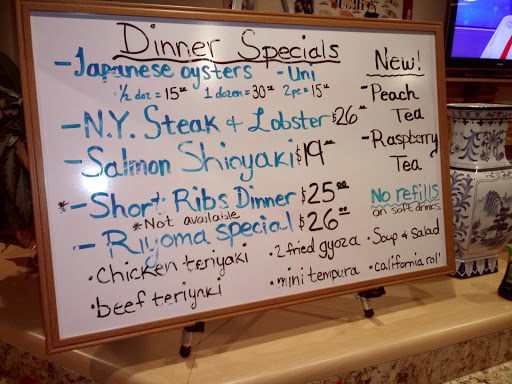 Dinner Specials
-Japanese oysters -Uni
1/2 doz = 15.00 1 dozen = 30.00 2pc = 15.00
-N.Y. Steak & Lobster $26.00
-Salmon Shioyaki $19.00
*-Short Ribs Dinner $25.00
*Not available
-Riyoma special $26.00
•chicken teriyaki •2 fried gyoza •Soup & salad
•beef teriyaki •mini tempura •california rol'
New!
-Peach
Tea
-Raspberry
Tea
No refills
on soft drinks